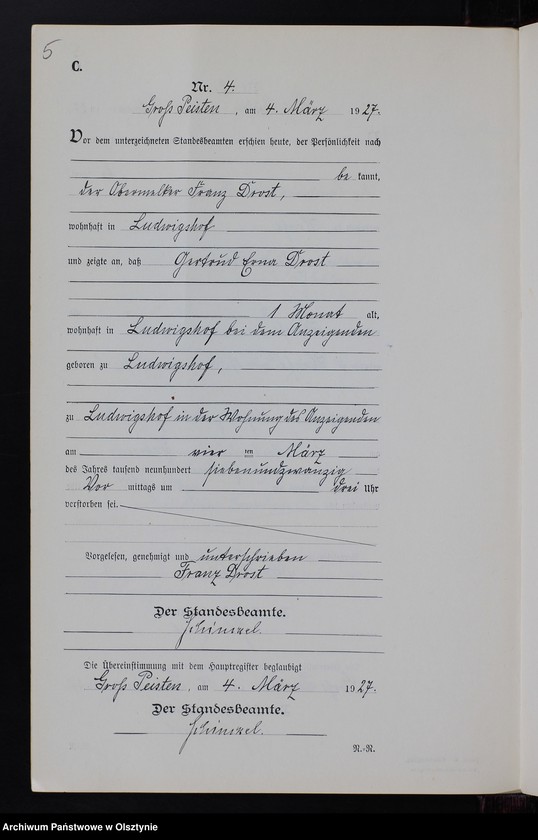 5
C.
Nr. 4.
Groß Peisten, am 4. März 1927.
Vor dem unterzeichneten Standesbeamten erschien heute, der Persönlichkeit nach
be kannt,
der Obermelker Franz Drost,
wohnhaft in Ludwigshof
und zeigte an, daß Gertrud Erna Drost
1 Monat alt,
wohnhaft in Ludwigshof bei dem Anzeigenden
geboren zu Ludwigshof,
zu Ludwigshof in der Wohnung des Anzeigenden
am vier ten März
des Jahres tausend neunhundert siebenundzwanzig
Vor mittags um drei Uhr
verstorben sei.
Vorgelesen, genehmigt und unterschrieben
Franz Drost
Der Standesbeamte.
Die Übereinstimmung mit dem Hauptregister beglaubigt
Groß Peisten, am 4. März 1927.
Der Standesbeamte.
N.-R.
Archiwum Państwowe w Olsztynie